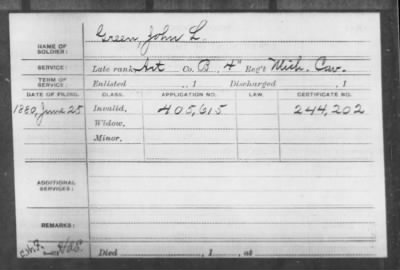 Green, John L.
NAME OF SOLDIER:
SERVICE: Late rank, Art Co. B, 4" Reg't Mich. Cav.
TERM OF SERVICE: Enlisted , 1 Discharged , 1
DATE OF FILING. CLASS. APPLICATION NO. LAW. CERTIFICATE NO.
1880, June 25 Invalid, 405,615 244,202
Widow,
Minor,
ADDITIONAL SERVICES:
REMARKS:
Died , 1 , at